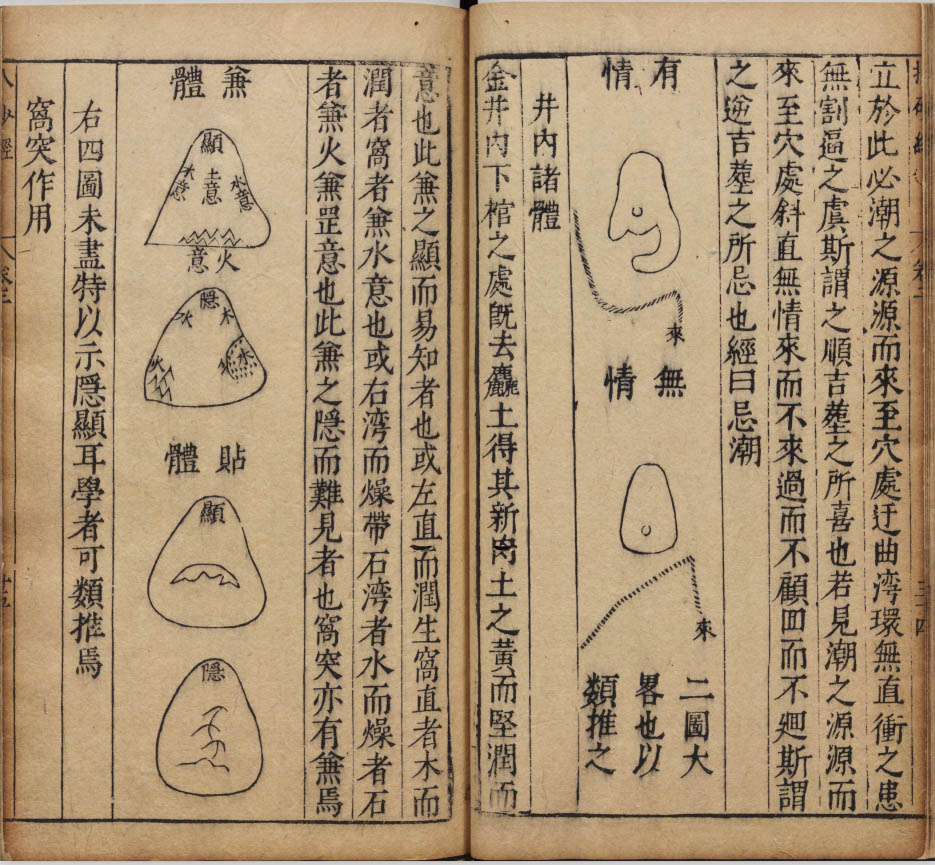 立於此必潮之源源而來至穴處迂曲湾環無直衝之患
無割逼之虞斯謂之順吉塟之所喜也若見潮之源源而
來至穴處斜直無情來而不來過而不顧囬而不廻斯謂
之逆吉塟之所忌也經曰忌潮
有情
來
無情
來
二圖大
畧也以
類推之
井内諸體
金井内下棺之處旣去麤土得其新肉土之黃而堅潤而
意也此兼之顯而易知者也或左直而潤生窩直者木而
潤者窩者兼水意也或右湾而燥帶石湾者水而燥者石
者兼火兼罡意也此兼之隱而難見者也窩突亦有兼焉
兼體
顯
水意
土意
木意
火意
隱
木
水
火
水
貼體
顯
隱
右四圖未盡特以示隱顯耳學者可類推焉
窩突作用